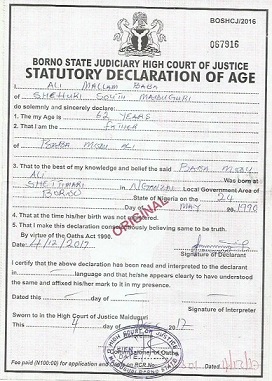 BOSHCJ/2016
067916
BORNO STATE JUDICIARY HIGH COURT OF JUSTICE
STATUTORY DECLARATION OF AGE
I ALI MALLAM BABA
of SHEHURI SOUTH MAIDUGURI
do solemnly and sincerely declare:
1. The my Age is 62 YEARS
2. That i am the FATHER
of BABA ALI
3. That to the best of my knowledge and belief the said BABA
ALI Was born at
in NGANZAI Local Government Area of
BORNO State of Nigeria on the 24
Day of MAY 1990
4. That at the time his/her birth was not
5. That I make this declaration conscientiously believing same to be truth.
By virtue of the Oaths Act 1990.
ORIGINAL
Date: 4/12/2017
Signature of Declarant
I certify that the above declaration has been read and interpreted to the declarant
in language and that he/she appears clearly to have understood
the same and affixed his/her mark to it in my presence.
Dated this day of
Signature of Interpreter
Sworn to in the High Court of Justice Maiduguri
This 4 day of 12
HIGH COURT OF JUSTICE
Fee paid (N100:00) for application and Oaths on RCR No.